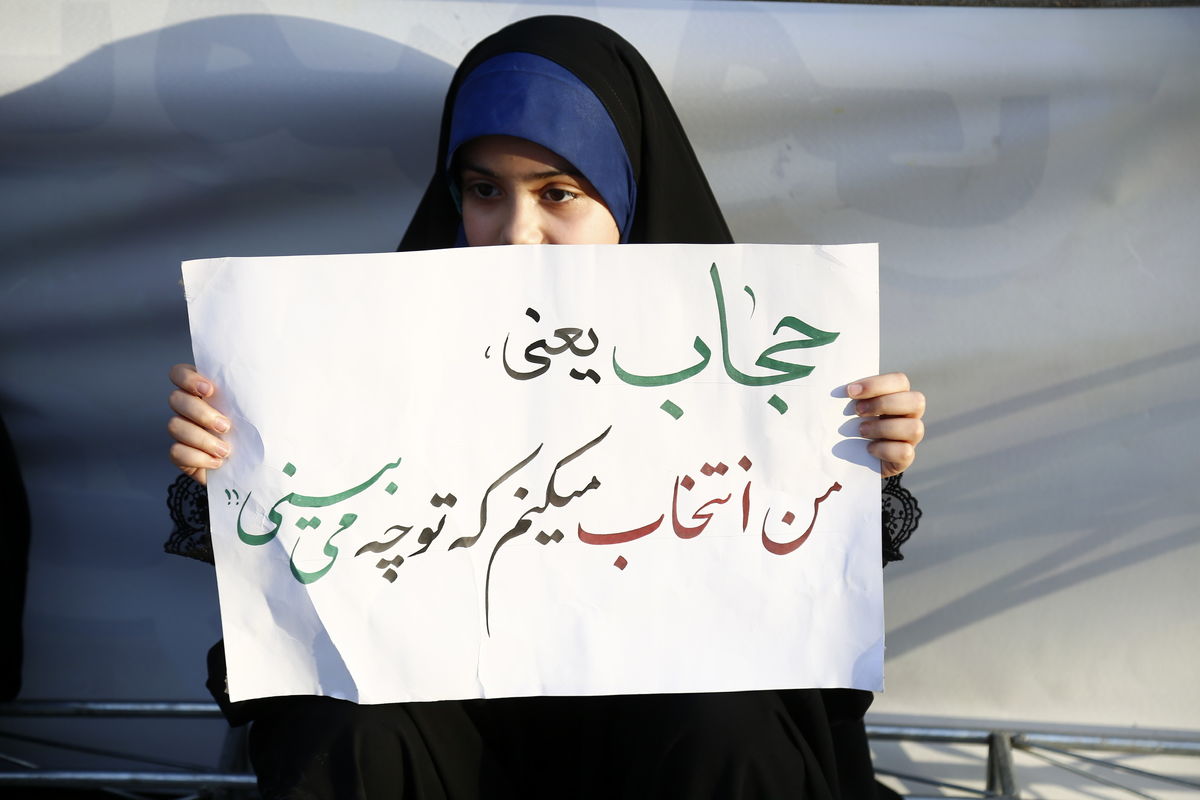 حجاب یعنی،
من انتخاب میکنم که تو چه می بینی!!